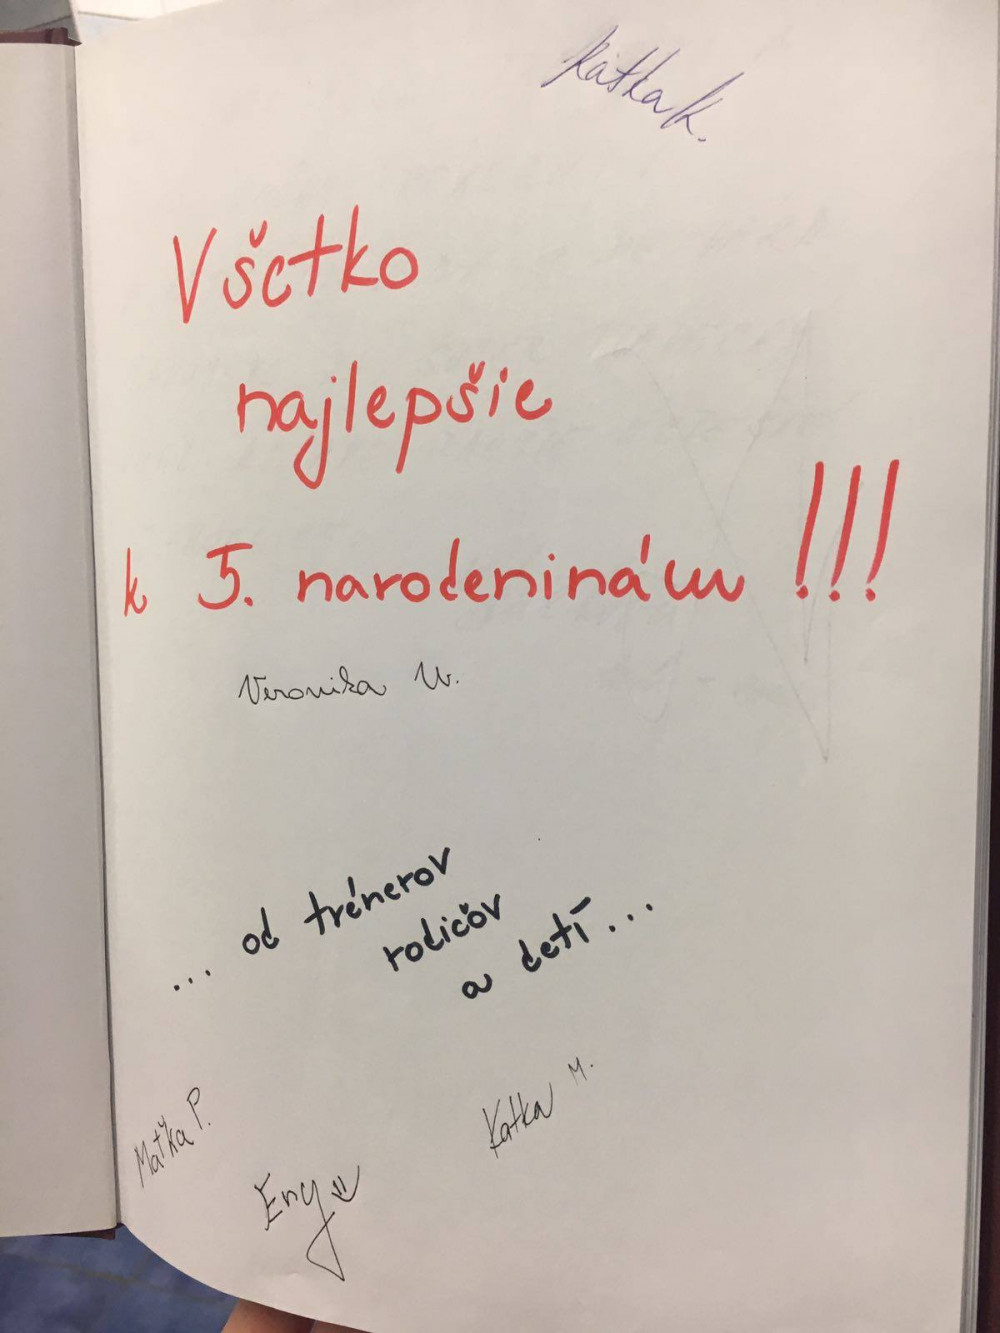 Katka K.
Všetko
najlepšie
k 5. narodeninám !!!
Veronika W.
... od trénerov
rodičov
a detí ...
Katka M.
Maťka P.
Eny